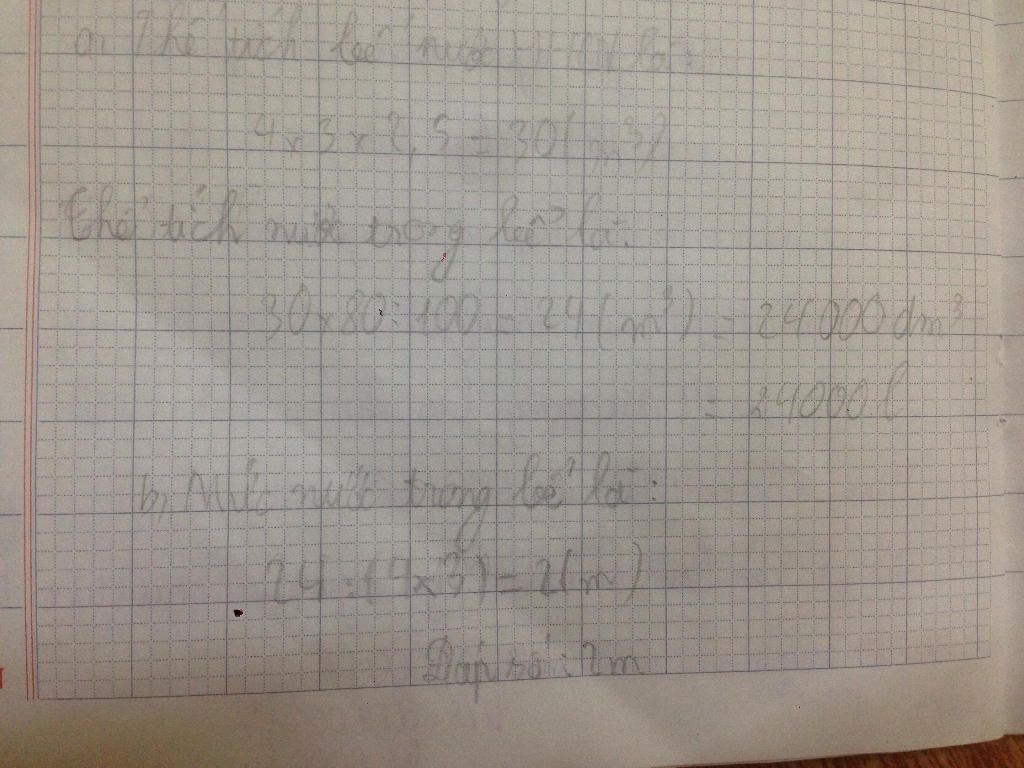 a, Thể tích bể nước HHCN là:
4 x 3 x 2,5 = 30 (m³)
Thể tích nước trong bể là:
30 x 80 : 100 = 24 (m³) = 24000 dm³
= 24000 l
b, Mức nước trong bể là:
24 : (4 x 3) = 2 (m)
Đáp số : 2m